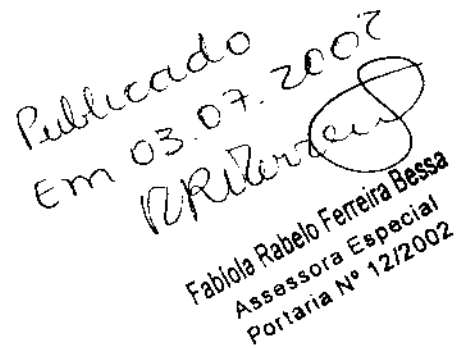 Publicado
Em 03.07.2002
Fabiola Rabelo Ferreira Bessa
Assessora Especial
Portaria Nº 12/2002